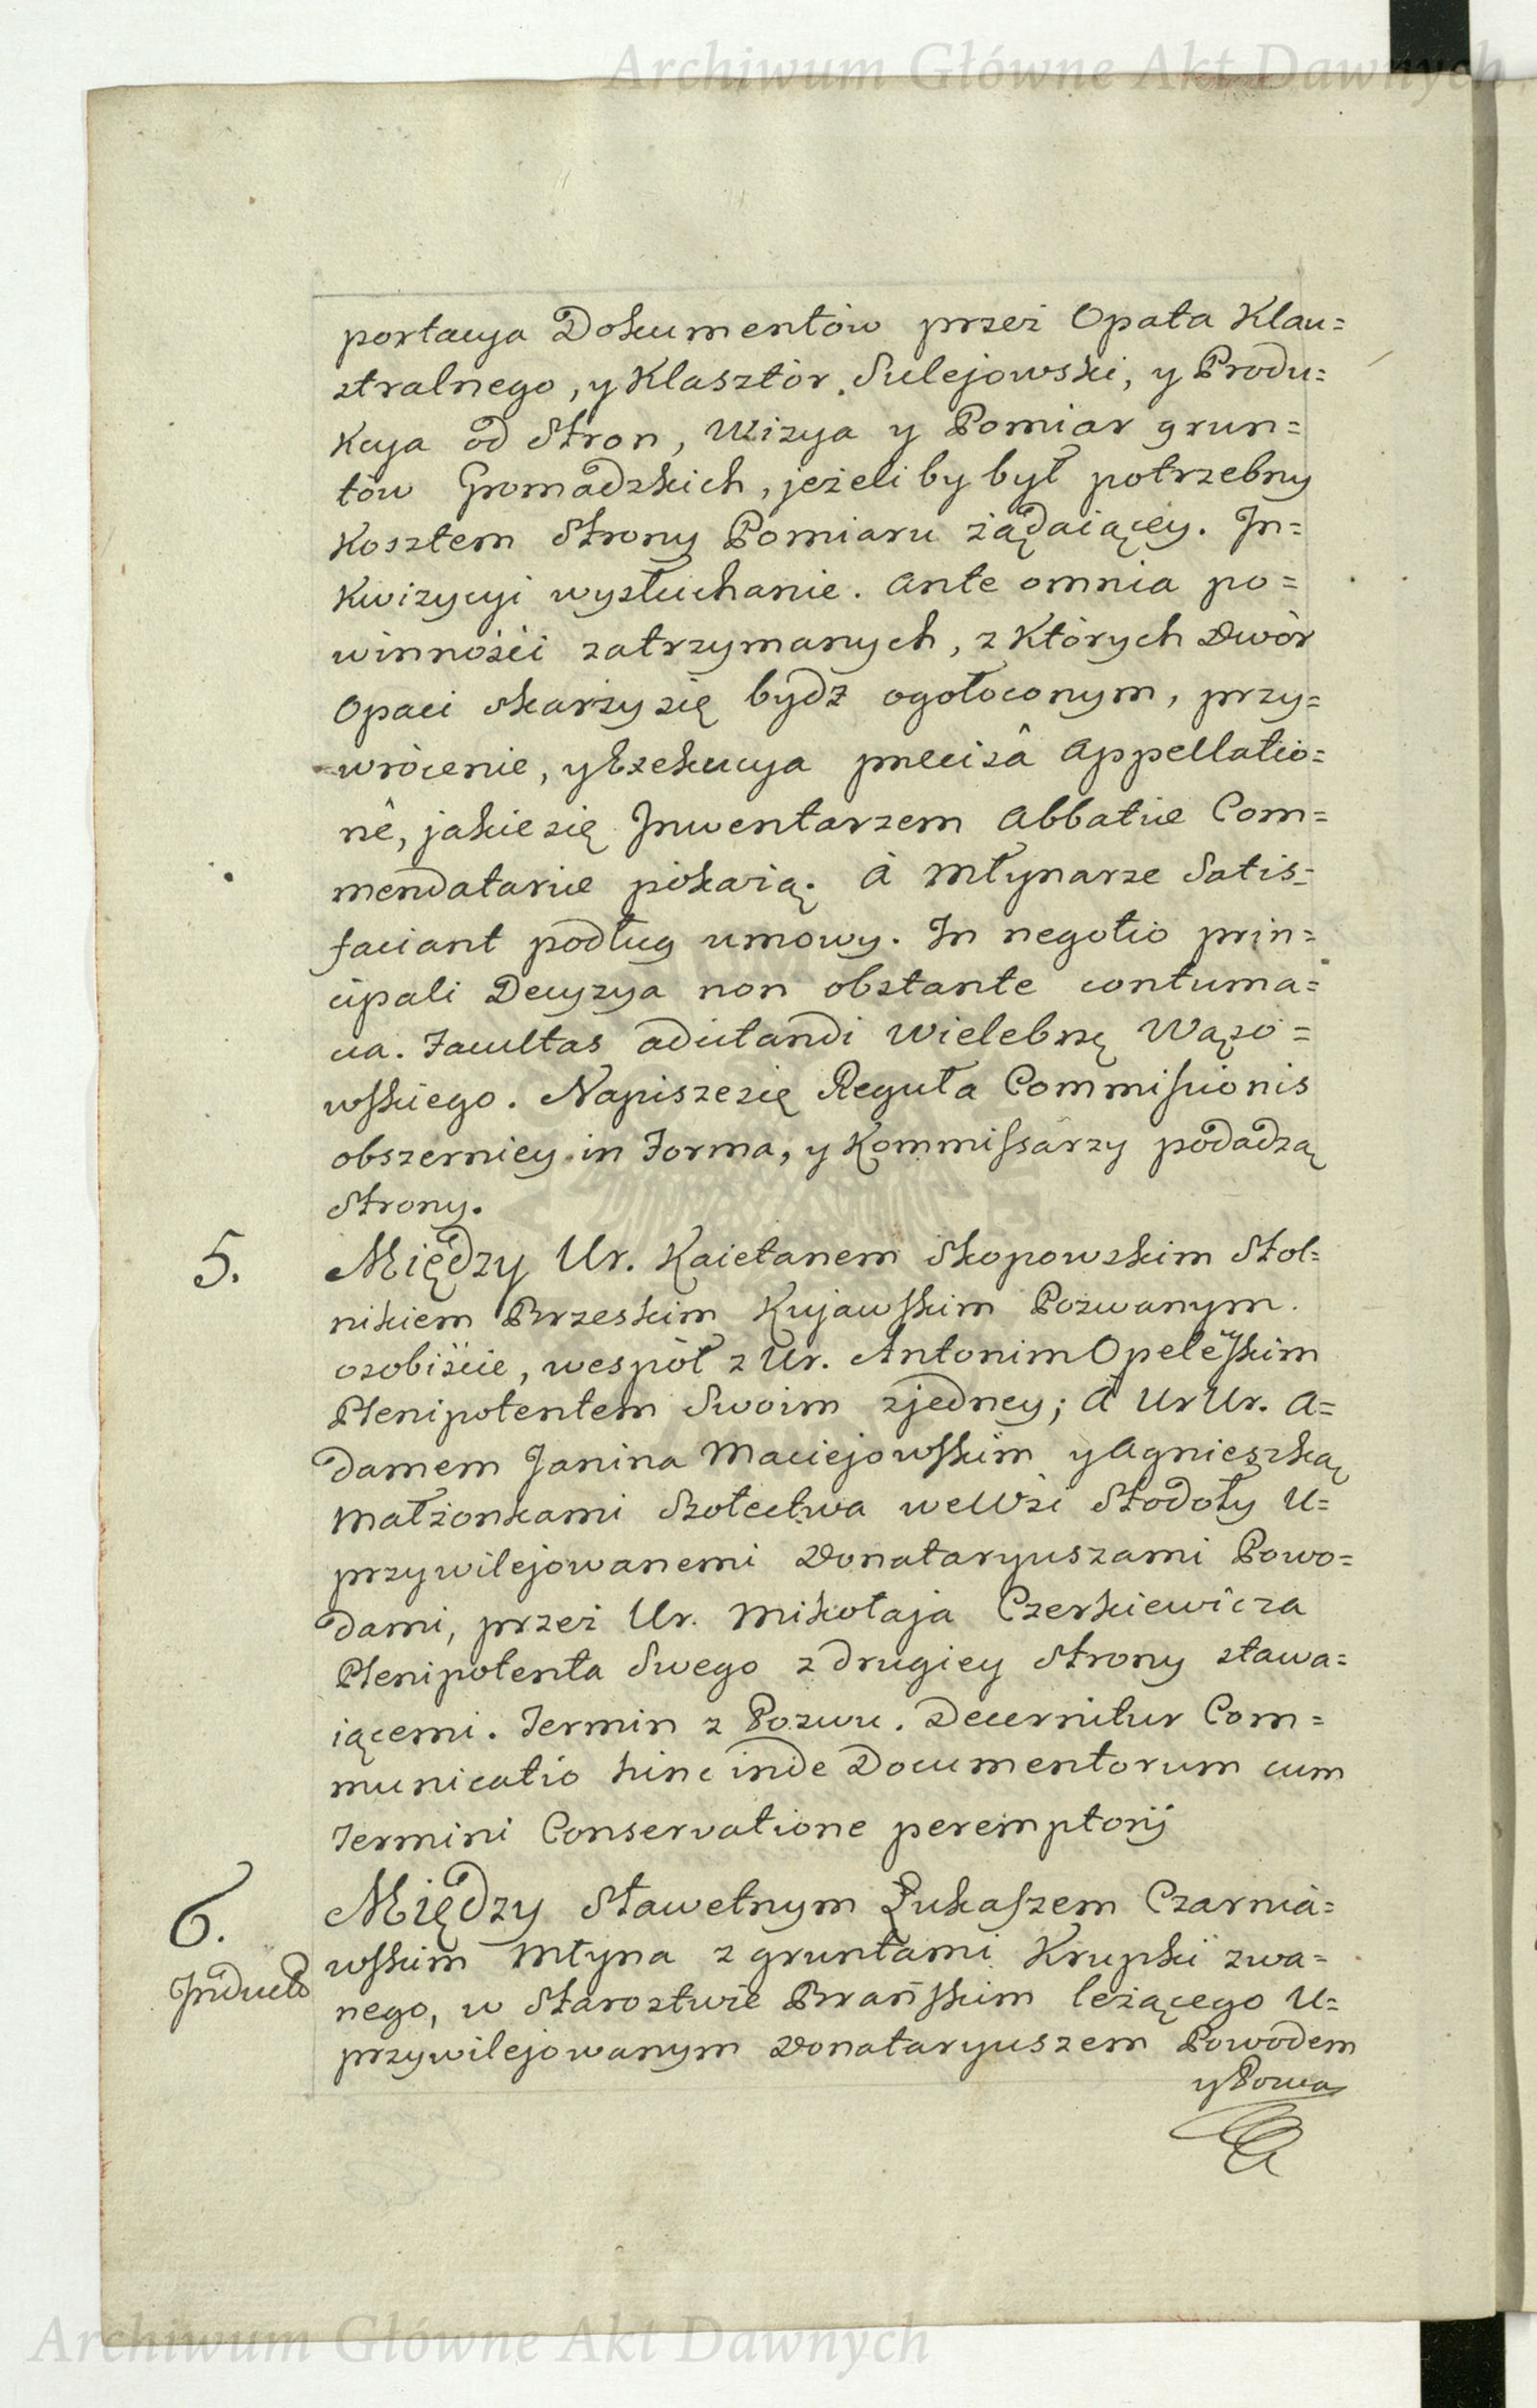 Archiwum Główne Akt Dawnych
portacya Dokumentów przez Opata Klau=
stralnego, y Klasztór Sulejowski, y Produ=
kcya od Stron, Wizya y Pomiar grun=
tów Gromadzkich, jeżeli by był potrzebny
Kosztem Strony Pomiaru żądaiącęy. In=
kwizycyi wysłuchanie. Ante omnia po=
winności zatrzymanych, z Których Dwór
Opaci skarży się bydź ogołoconym, przy=
wrócenie, y Exekucya precisâ Appellatio=
nê, jakie się Inwentarzem Abbatiæ Com=
mendatariæ pokażą. à Młynarze Satis=
faciant podług umowy. In negotio prin=
cipali Decyzya non obstante contuma=
cia. Facultas adcitandi Wielebnę Wązo=
wskiego. Napisze się Reguła Commissionis
obszerniey in Forma, y Kommissarzy podadzą
Strony.
5. Między Ur. Kaietanem Skopowskim Stol=
nikiem Brzeskim Kujawskim Pozwanym
osobiście, wespół z Ur. Antonim Opeleÿskim
Plenipotentem Swoim z jedney; à Ur Ur. A=
damem Janina Maciejowskim y Agnieszką
Małżonkami Szołectwa we Wsi Stodoły U=
przywilejowanemi Donataryuszami Powo=
dami, przez Ur. Mikołaja Czerkiewicza
Plenipotenta Swego z drugiey Strony stawa=
iącemi. Termin z Pozwu. Decernitur Com=
municatio hinc inde Documentorum cum
Termini Conservatione peremptorij
6. Między Sławetnym Łukaszem Czarnia=
Induct͠o wskim Młyna z gruntami Krupki zwa=
nego, w Starostwie Brańskim leżącego U=
przywilejowanym Donataryuszem Powodem
y Powa
Archiwum Główne Akt Dawnych